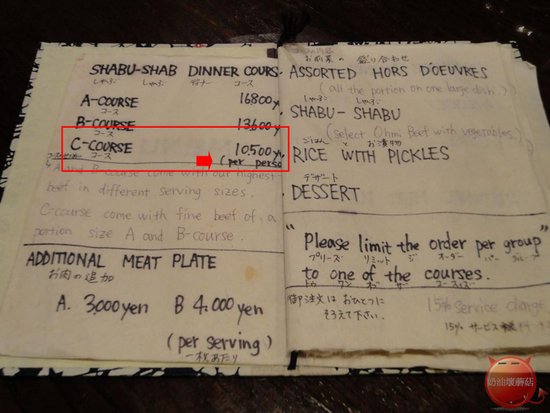 SHABU-SHAB DINNER COURS
しゃぶ しゃぶ ディナー コース
A-COURSE 16800y
コース
B-COURSE 13,600y
コース
C-COURSE 10,500y
コース (per perso
A and B course come with our highest
beef in different serving sizes.
C-course come with fine beef of a
portion size A and B-course.
ADDITIONAL MEAT PLATE
お肉の追加
A. 3,000yen B 4,000 yen
(per serving)
一枚あたり
お前菜の 盛り合わせ
ASSORTED HORS D'OEUVRES
(all the portion on one large dish.)
しゃぶ しゃぶ
SHABU-SHABU
(select Ohmi Beef with vegetables)
ごはん と お漬物
RICE WITH PICKLES
デザート
DESSERT
"Please limit the order per group"
プリーズ リミット ジ オーダー パー グループ
to one of the courses.
トゥ ワン オブ ザ コースィズ
御注文は おひとつに
そろえて下さい。
15% Service Charge
15% サービス料
奶油壞蘑菇